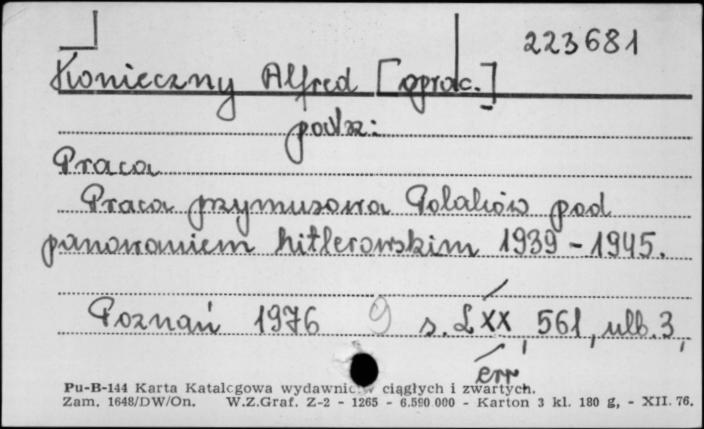 223681
Konieczny Alfred [oprac.]
patrz:
Praca
Praca przymusowa Polaków pod
panowaniem hitlerowskim 1939-1945.
Poznań 1976 9 s. LXX, 561, nlb. 3,
err.
Pu-B-144 Karta Katalogowa wydawnictw ciągłych i zwartych.
Zam. 1648/DW/On. W.Z.Graf. Z-2 - 1265 - 6.590 000 - Karton 3 kl. 180 g, - XII. 76.